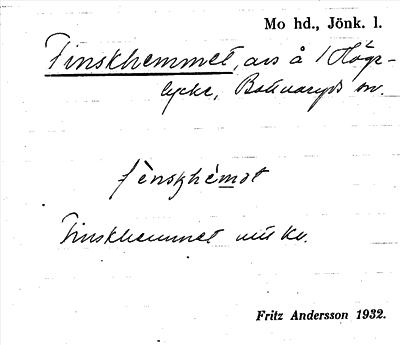 Mo hd., Jönk. l.
Finskhemmet, avs å 1 Höga-
lycke, Bottnaryds sn.
fènskhèmət
Finskhemmet mtl kv.
Fritz Andersson 1932.